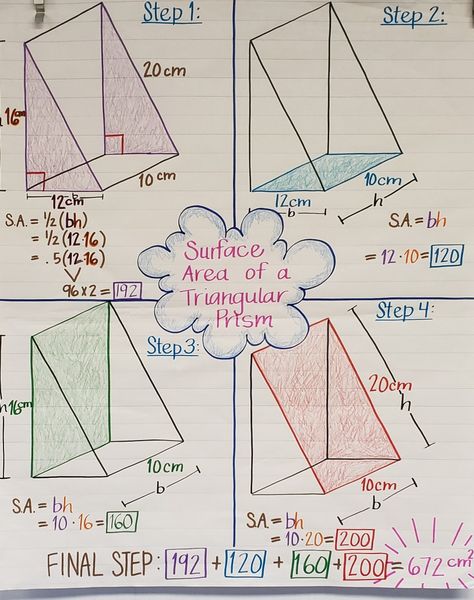 Step 1:
16cm
20cm
10cm
12cm
b
S.A. = ½(bh)
= ½(12·16)
= .5(12·16)
96 x 2 = 192
Step 2:
12cm
b
10cm
h
S.A. = bh
= 12·10 = 120
Surface
Area of a
Triangular
Prism
Step 3:
h
16cm
10cm
b
S.A. = bh
= 10·16 = 160
Step 4:
20cm
h
10cm
b
S.A. = bh
= 10·20 = 200
FINAL STEP: 192 + 120 + 160 + 200 = 672 cm²